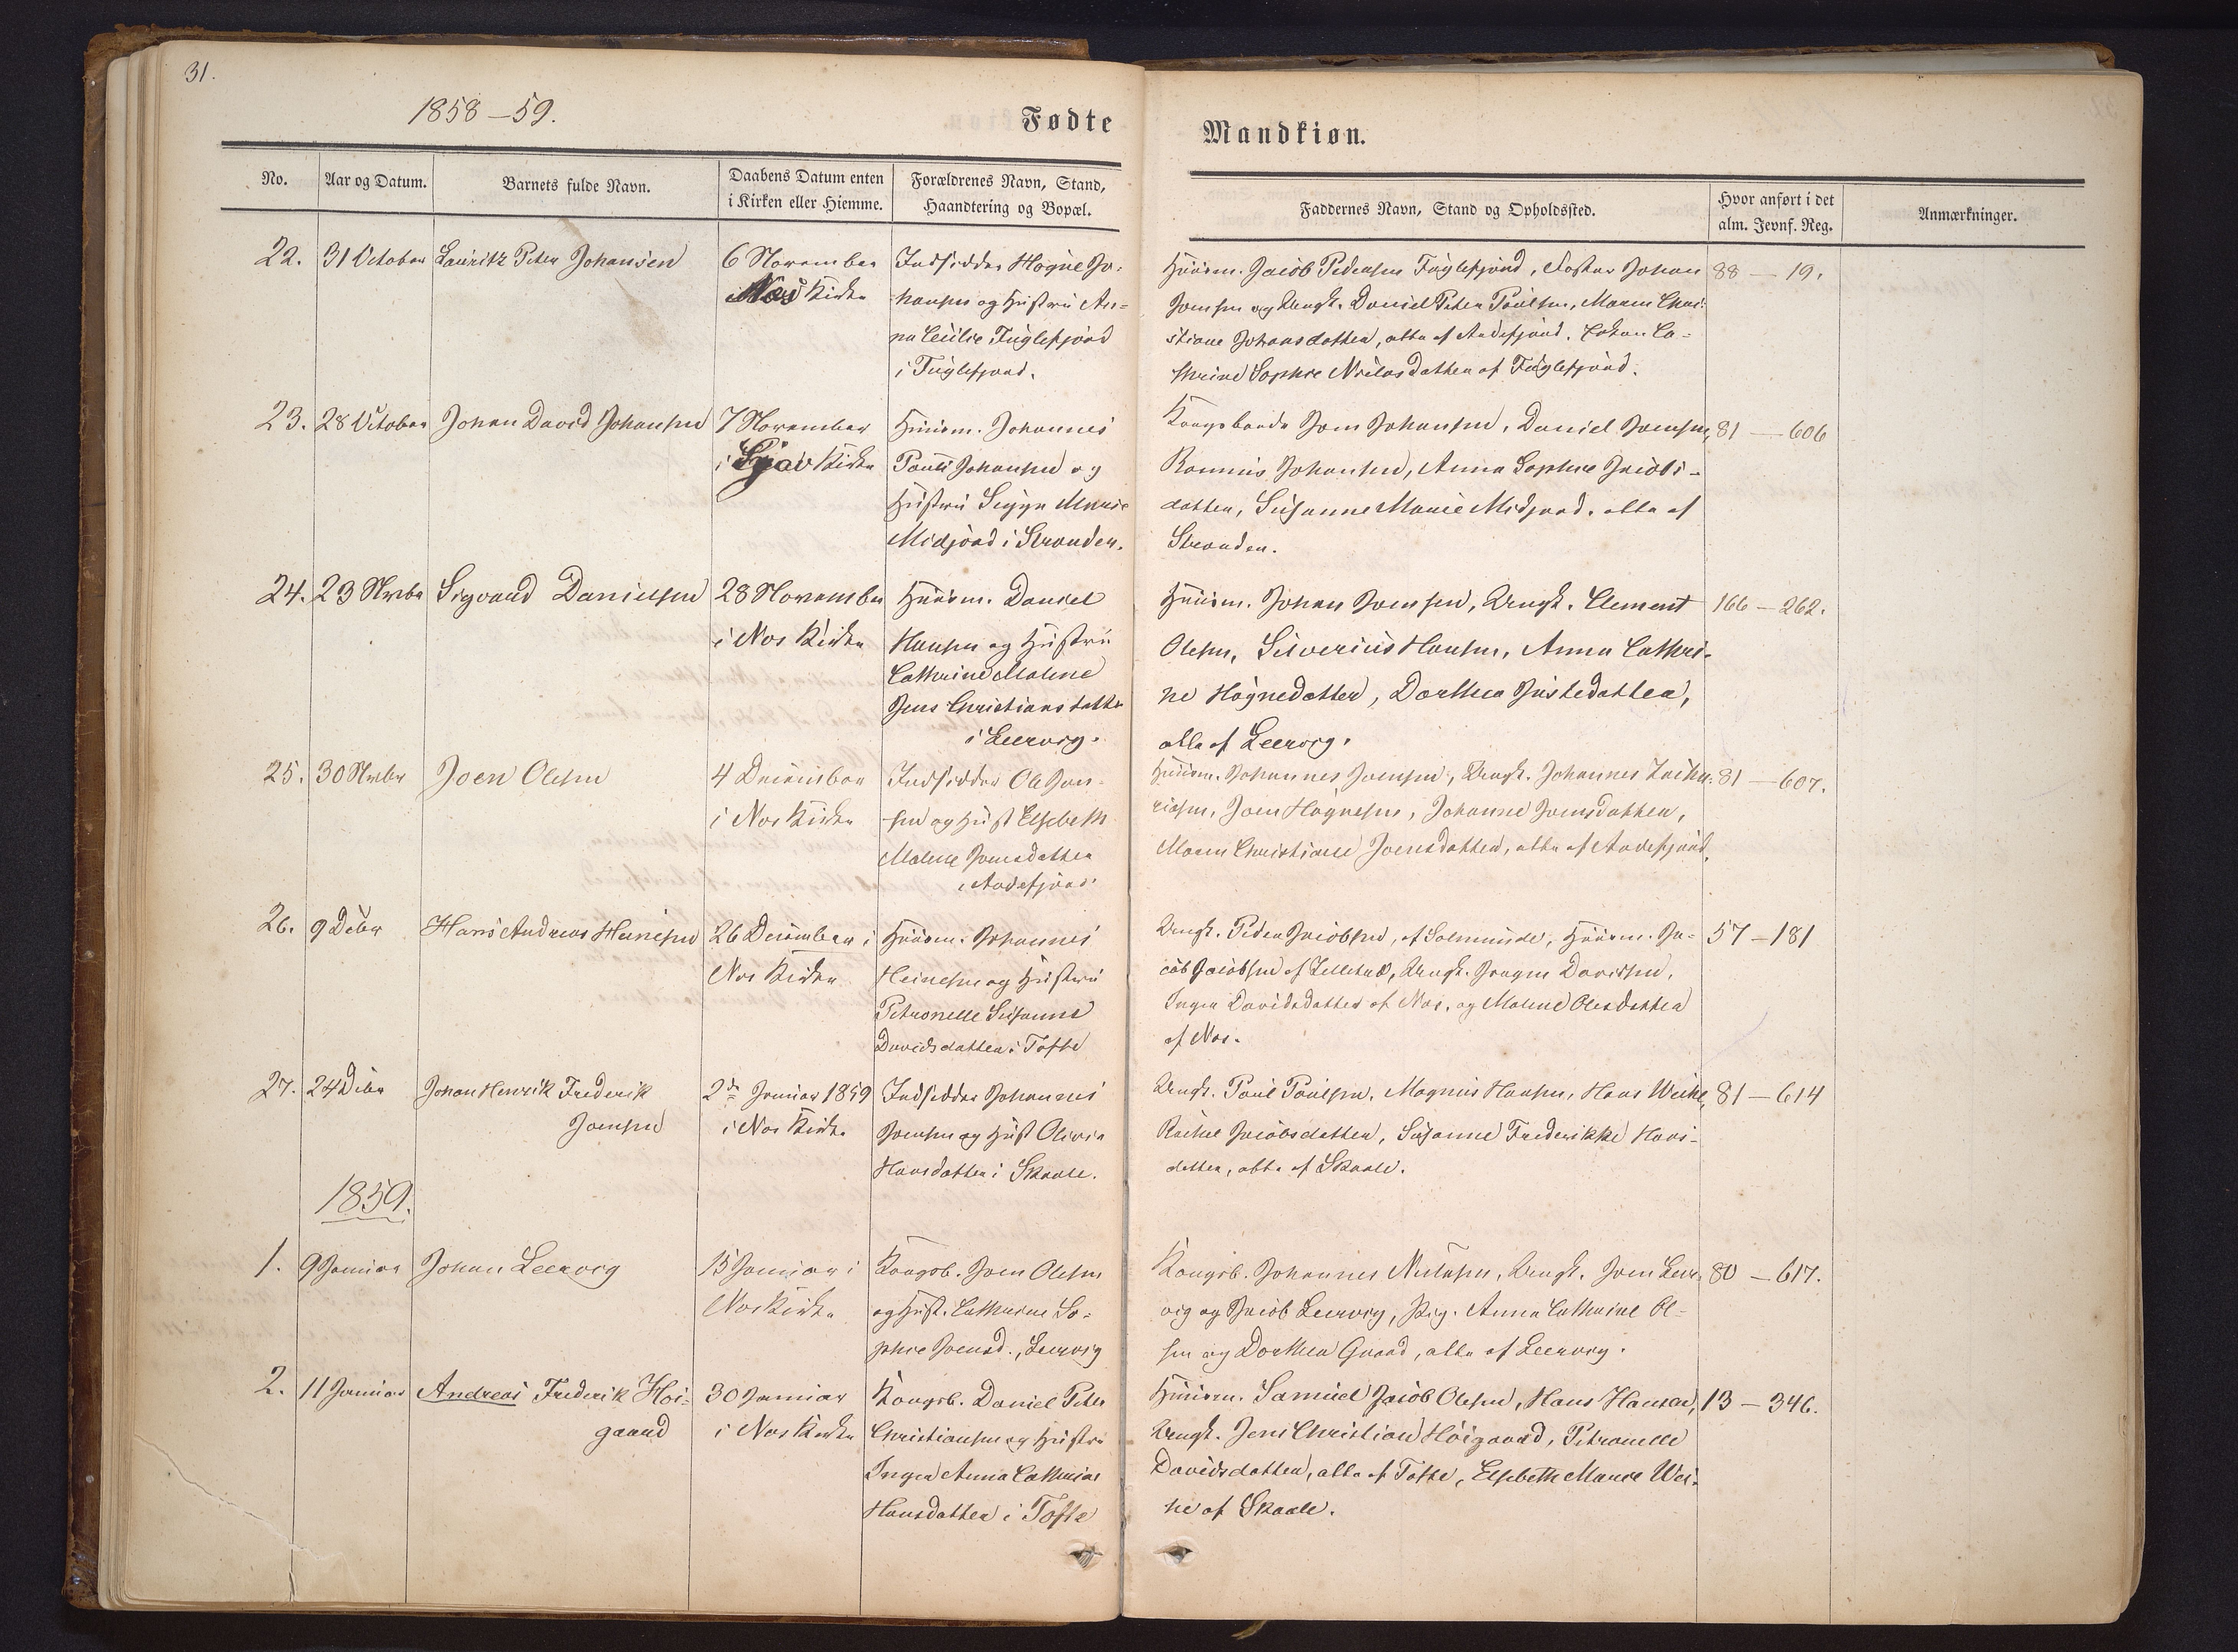 31.
1858-59.
Fødte
Mandkiøn.
No.
Aar og Datum.
Barnets fulde Navn.
Daabens Datum enten
i Kirken eller Hiemme.
Forældrenes Navn, Stand,
Haandtering og Bopæl.
Faddernes Navn, Stand og Opholdssted.
Hvor anført i det
alm. Jevnf. Reg.
Anmærkninger.
22.
31 October
Lauritz Peter Johansen
6 November
i Næs Kirke
Indsidder Høgne Jo-
hansen og Hustru An-
na Cecilie Fuglefjord
i Fuglefjord.
Huusm. Jacob Pedersen Fuglefjord, Johan
Joensen og Ungk. Daniel Peter Poulsen, Maren Chri-
stiane Johansdatter, alle af Andefjord. Ca-
thrine Sophie Nielsdatter af Fuglefjord.
88 - 19.
23.
28 October
Johan David Johansen
7 November
i Kirke
Huusm. Johannes
Poul Johansen og
Hustru Marie
Midjord i Strander.
Kongsbonde Joen Johansen, Daniel Joensen,
Rasmus Johansen, Anna Sophie Jacobs-
datter, Susanne Marie Midjord, alle af
Strander.
81 - 606
24.
23 Novbr
Sigvand Danielsen
28 November
i Næs Kirke
Huusm. Daniel
Hansen og Hustru
Cathrine Malene
Jens Christiansdatter
i Leervig.
Huusm. Johan Joensen, Ungk. Clement
Olesen, Silverius Hansen, Anna Cathri-
ne Høgnedatter, Dorthea Justedatter,
alle af Leervig.
166 - 262.
25.
30 Novbr
Joen Olesen
4 December
i Næs Kirke
Indsidder Ole Joen-
sen og Hust Elsebeth
Malene Joensdatter
i Andefjord.
Huusm. Johannes Joensen, Ungk. Johannes Zacha-
riasen, Joen Høgnesen, Johanne Joensdatter,
Maren Christiane Joensdatter, alle af Andefjord.
81 - 607.
26.
9 Debr
Hans Andreas Heinesen
26 December i
Næs Kirke
Huusm. Johannes
Heinesen og Hustru
Petronelle Susanne
Davidsdatter i Tofte
Ungk. Peder Jacobsen, af Solmunde, Huusm. Ja-
cob Jacobsen af Ungk. Davidsen,
Inger Davidsdatter af Næs, og Malene Olesdatter
af Næs.
57 - 181
27.
24 Debr
Johan Henrik Frederik
Joensen
2de Januar 1859
i Næs Kirke
Indsidder Johannes
Joensen og Hust Olivia
Hansdatter i Skaale.
Ungk. Poul Poulsen, Magnus Hansen, Hans Weihe,
Rachel Jacobsdatter, Susanne Frederikke Hans-
datter, alle af Skaale.
81 - 614
1859.
1.
9 Januar
Johan Leervig
15 Januar i
Næs Kirke
Kongsb. Joen Olesen
og Hust. Cathrine So-
phie Joensd., Leervig
Kongsb. Johannes Nielsen, Ungk. Joen Leer-
vig og Jacob Leervig, Pig. Anna Cathrine Ol-
sen og Dorthea Gaard, alle af Leervig.
80 - 617.
2.
11 Januar
Andreas Frederik Høi-
gaard
30 Januar
i Næs Kirke
Kongsb. Daniel Peter
Christiansen og Hustru
Inger Anna Cathrine
Hansdatter i Tofte
Huusm. Samuel Jacob Olesen, Hans Hansen,
Ungk. Jens Christian Høigaard, Petronelle
Davidsdatter, alle af Tofte, Elsebeth Marie Wei-
he af Skaale.
13 - 346.